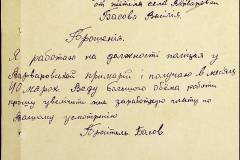 от жителя села Варваровки
Басова Василия.
Прошения.
Я работаю на должности поліцая у
Варваровской примарии і получаю в месяц
90 Марок Веду большого обема роботи
прошу увеличить мне заработную плату по
Вашому усмотрению
Басов.